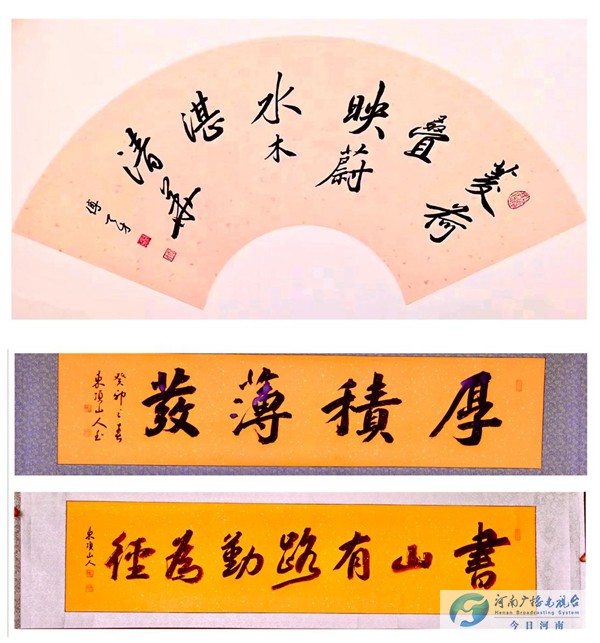 菱荷疊映蔚水木湛清華
厚積薄發
癸卯之春
東頂山人書
書山有路勤為徑
東頂山人
河南广播电视台
Henan Broadcasting System
今日河南